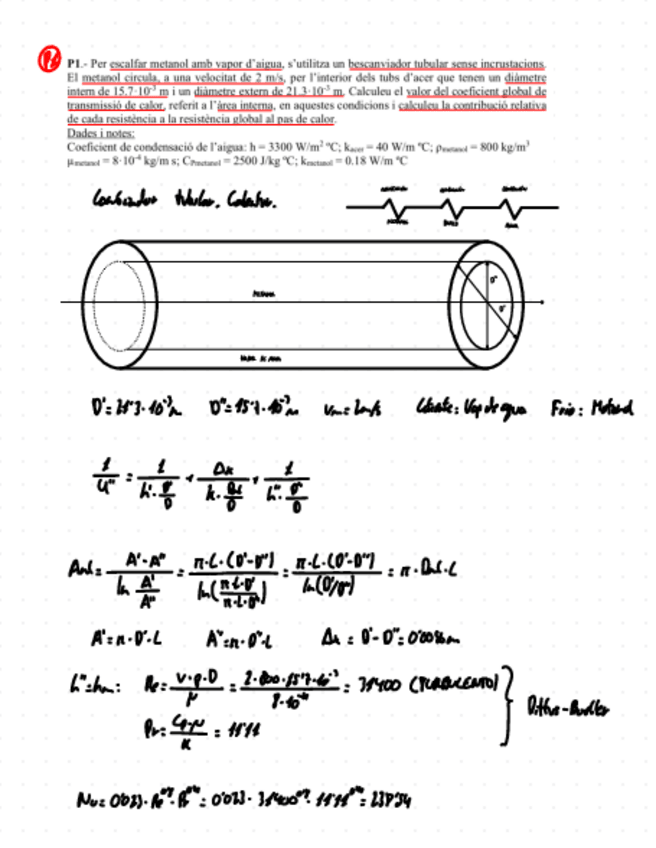 P1.- Per escalfar metanol amb vapor d'aigua, s'utilitza un bescanviador tubular sense incrustacions.
El metanol circula, a una velocitat de 2 m/s, per l'interior dels tubs d'acer que tenen un diàmetre
intern de 15.7·10⁻³ m i un diàmetre extern de 21.3·10⁻³ m. Calculeu el valor del coeficient global de
transmissió de calor, referit a l'àrea interna, en aquestes condicions i calculeu la contribució relativa
de cada resistència a la resistència global al pas de calor.
Dades i notes:
Coeficient de condensació de l'aigua: h = 3300 W/m² ºC; k_acer = 40 W/m ºC; ρ_metanol = 800 kg/m³
μ_metanol = 8·10⁻⁴ kg/m s; Cp_metanol = 2500 J/kg ºC; k_metanol = 0.18 W/m ºC
tubular.
D'' D'
D' = 21'3·10⁻³m D'' = 15'7·10⁻³m Vm = 2m/s Caliente: Vap de agua Frio: Metanol
1/U'' = 1/(h'· /D) + Δx/(k· /D) + 1/(h''· /D)
Aml = (A'-A'')/(ln A'/A'') = (π·L·(D'-D''))/(ln(π·L·D'/π·L·D'')) = (π·L·(D'-D''))/(ln(D'/D'')) = π·Dml·L
A' = π·D'·L A'' = π·D''·L Δx = D'-D'' = 0'0056m
h'' = hm: Re = (v·ρ·D)/μ = (2·800·15'7·10⁻³)/(8·10⁻⁴) = 31400 (TURBULENTO)
Pr = (Cp·μ)/K = 11'11
Dittus-Boelter
Nu = 0'023· Re · Pr = 0'023· 31400 · 11'11 =